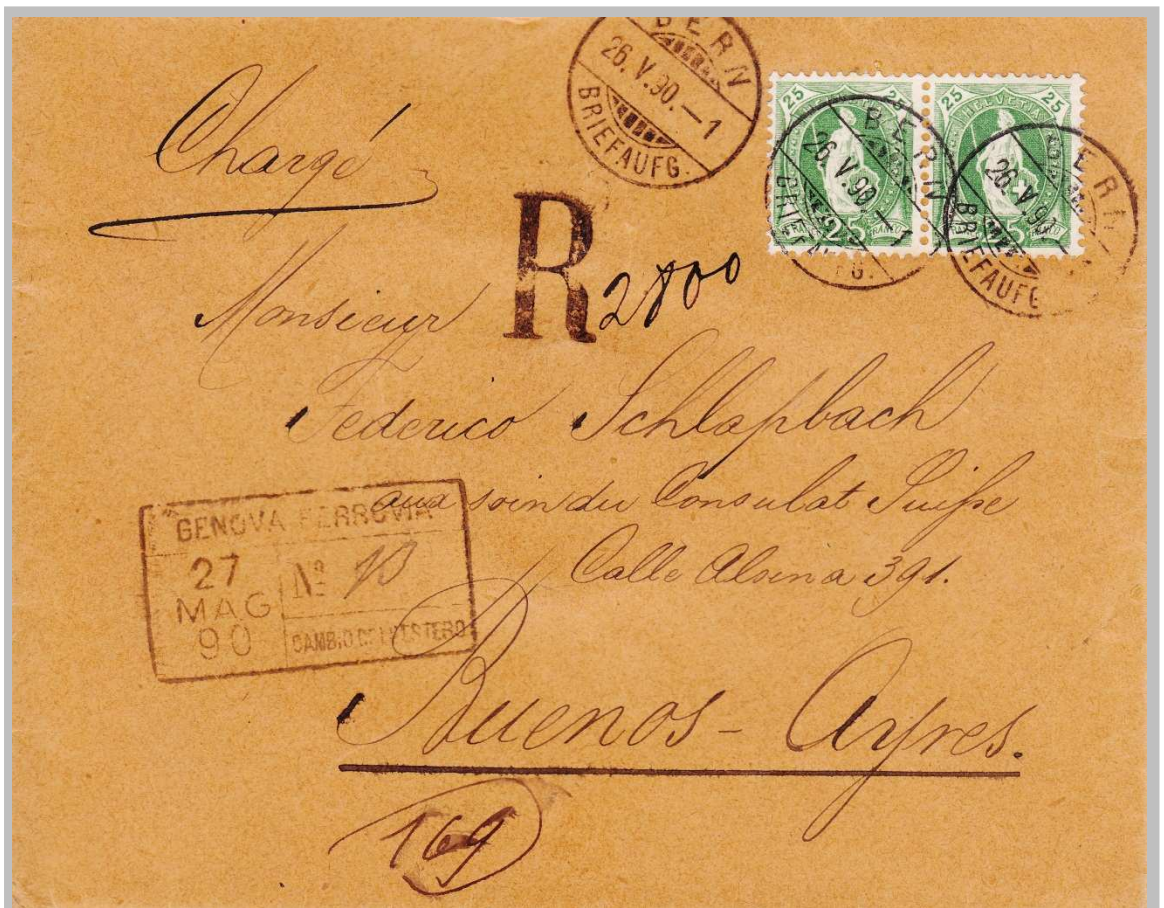 Chargé
BERN
26.V.90.-1
BRIEFAUFG.
25 25
HELVETIA
25
BERN
26.V.90.-1
BRIEFAUFG.
25 25
HELVETIA
25
BERN
26.V.90
BRIEFAUFG
R 2800
Monsieur
Federico Schlapbach
aux soin du Consulat Suisse
Calle Alsina 391.
Buenos-Ayres.
GENOVA FERROVIA
27
MAG
90
Nº 13
CAMBIO COLL'ESTERO
169